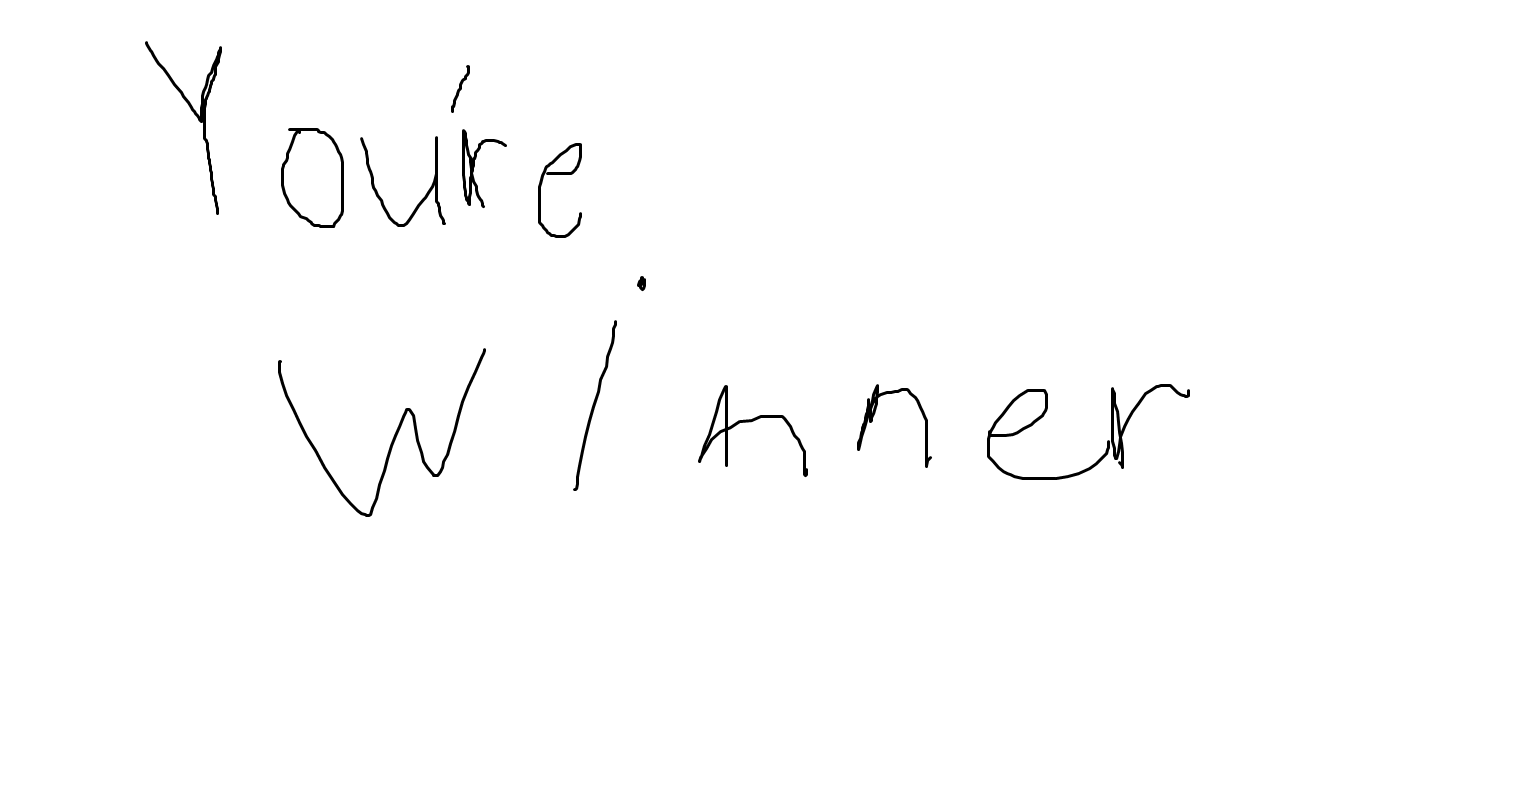 You're
Winner